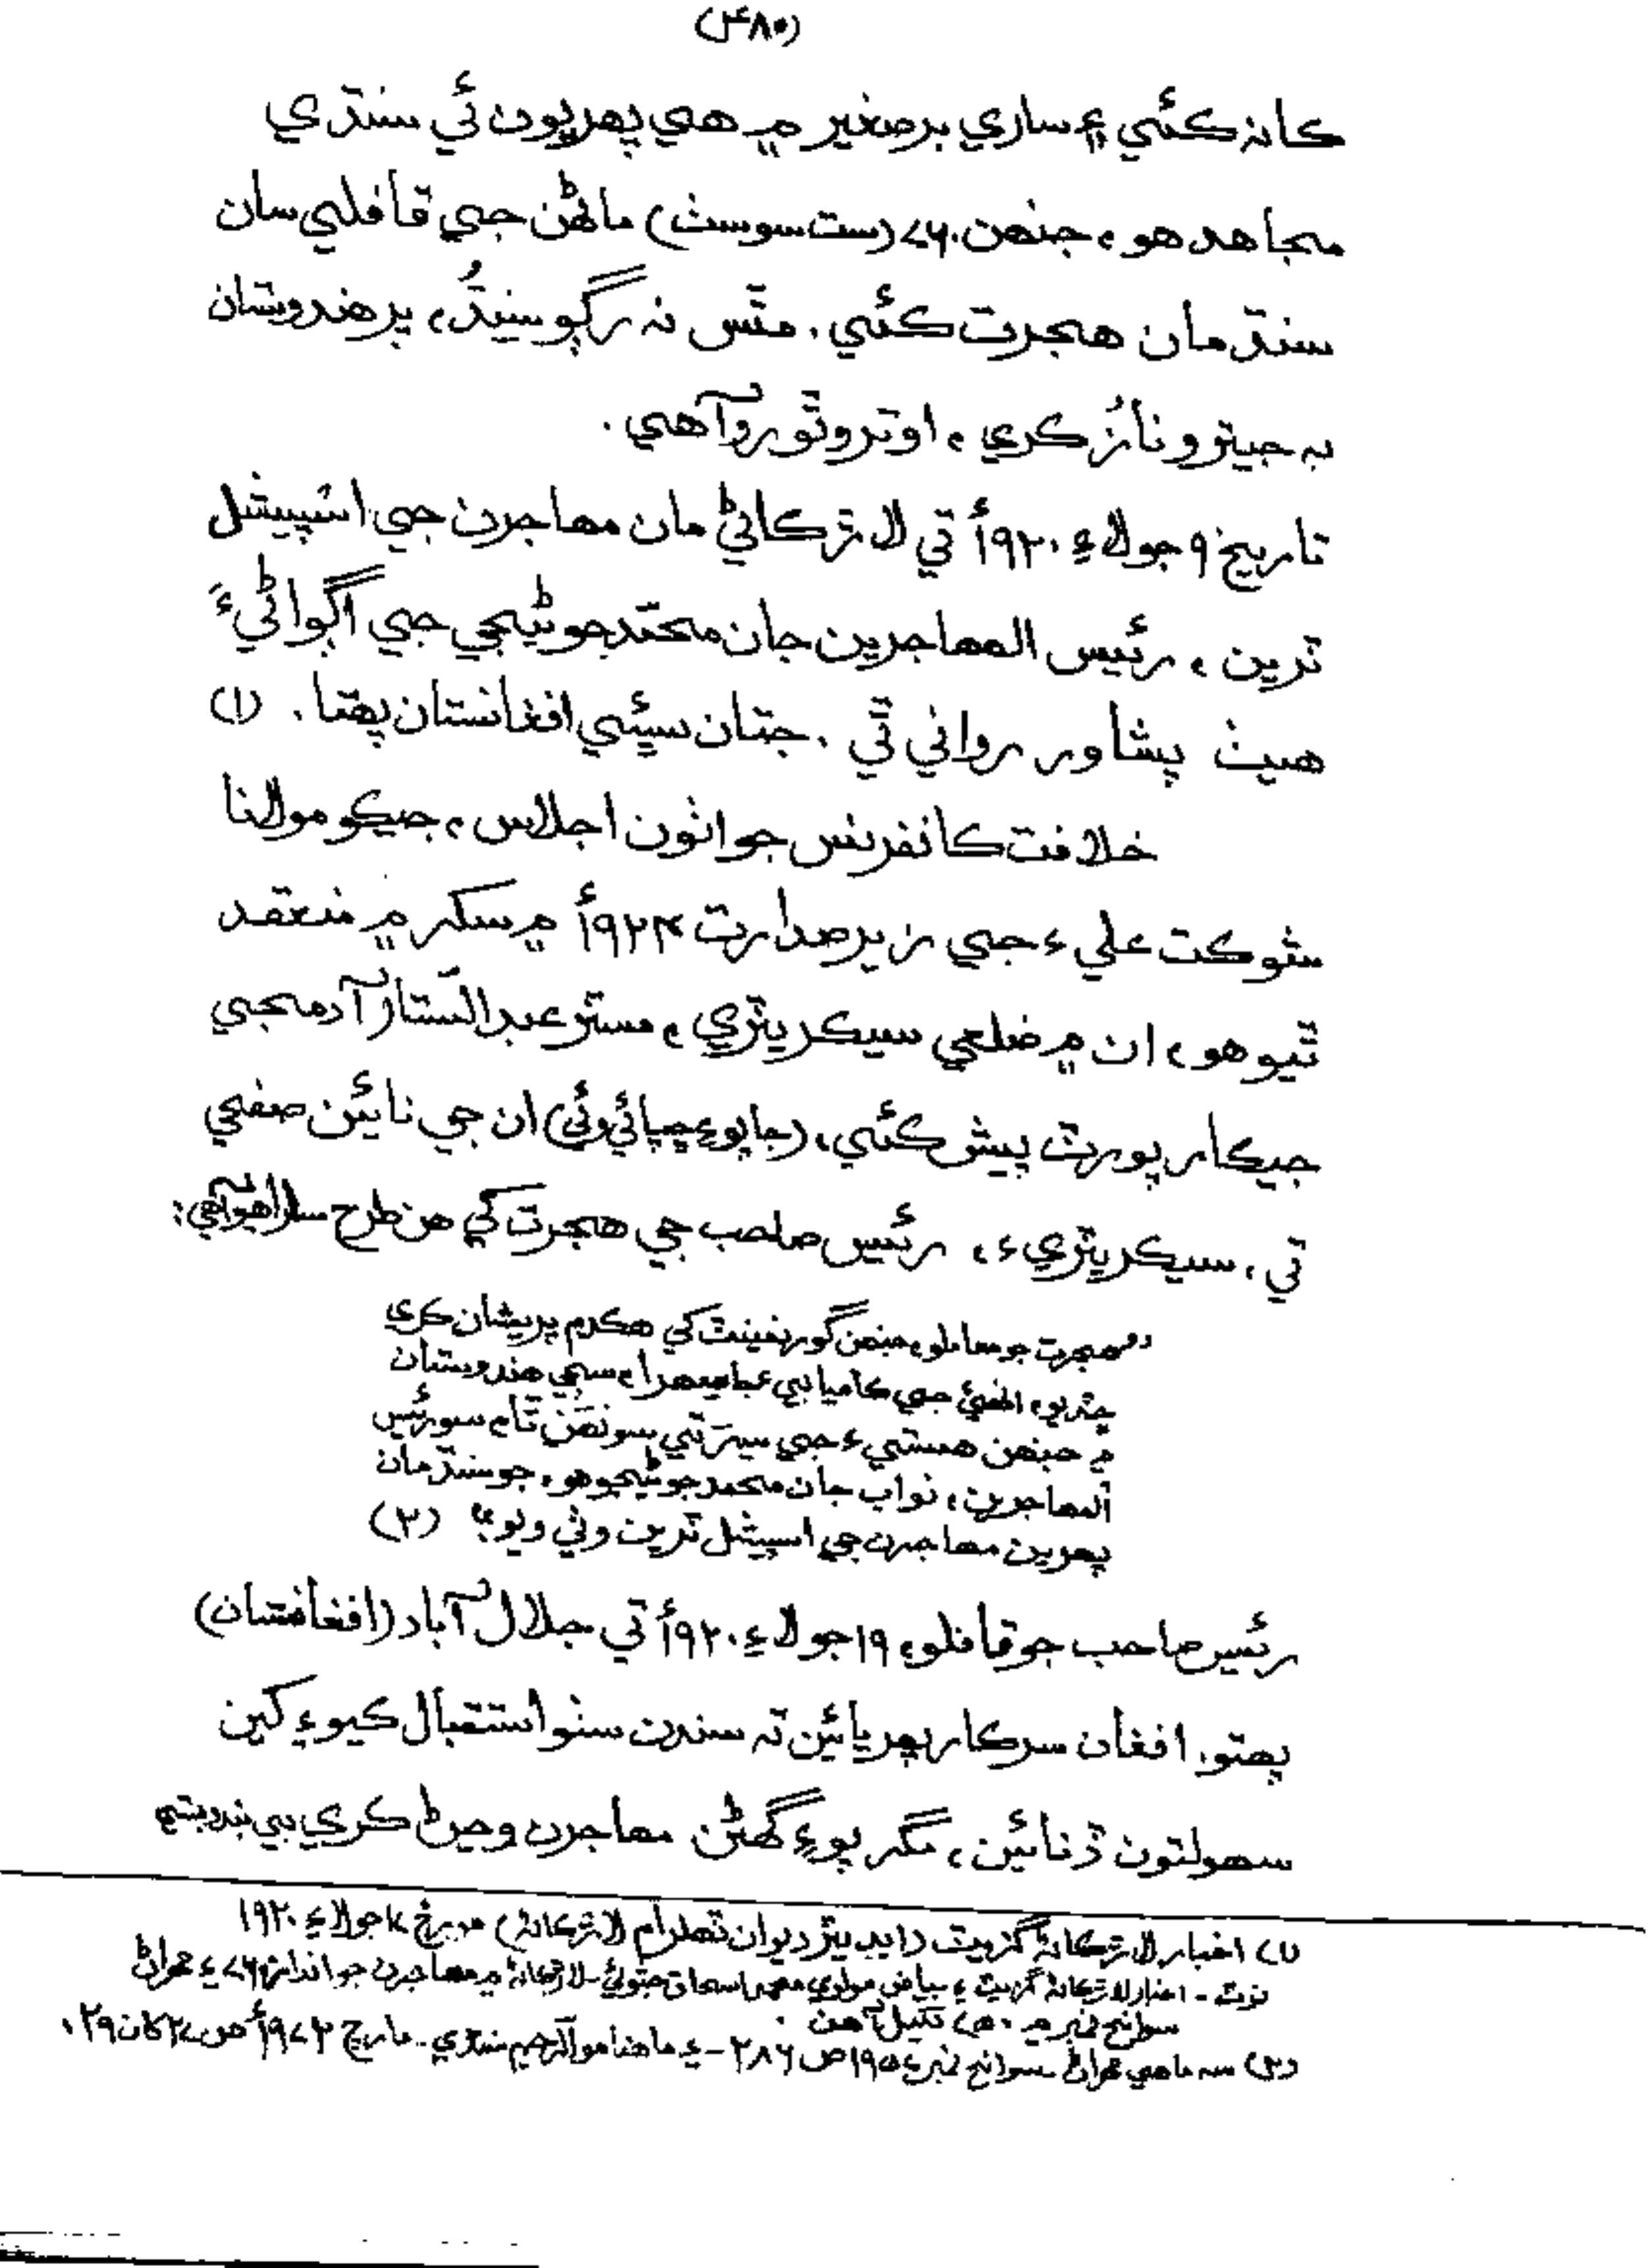 (۴۸۰)
کانہ کئي ۽ ساري برصغير ۾ هي پهريون ئي سنڌي
مجاهد هو، جنهن ۷۶۰ (ست سو سٺ) ماڻهن جي قافلي سان
سنڌ مان هجرت کئي. مٿس نہ رڳو سنڌُ، پر هندوستان
بہ جيترو نازُ کري، اوترو ٿورو آهي.
تاريخ ۹ جولاءِ ۱۹۲۰ع تي لاڙکاڻي مان مهاجرن جي اسپيشل
ٽرين، رئيس المهاجرين جان محمد جوڻيجي جي اڳواڻيءَ
هيٺ پشاور رواني ٿي. جتان سيئي افغانستان پهتا. (۱)
خلافت کانفرنس جو اٺون اجلاس، جيکو مولانا
شوکت عليءَ جي زير صدارت ۱۹۲۴ع ۾ سکر ۾ منعقد
ٿيو هو، ان ۾ ضلعي سيکريٽري، مسٽر عبدالستار آدمجي
جيکا رپورٽ پيش کئي، (جا پوءِ ڇپائي وئي) ان جي نائين صفحي
تي، سيکريٽريءَ، رئيس صاحب جي هجرت کي هن طرح ساراهيو آهي:
"هجرت جو معاملو، جنهن گورنمينٽ کي هکدم پريشان کري
ڇڏيو، انهيءَ جي کاميابي ۽ سهرا، سڄي هندوستان
۾ جنهن هستيءَ جي سر تي سونهن ٿا، سو رئيس
المهاجرين، نواب جان محمد جوڻيجو هو، جو سنڌ مان
پهرين مهاجرن جي اسپيشل ٽرين وٺي ويو." (۲)
رئيس صاحب جو قافلو، ۱۹ جولاءِ ۱۹۲۰ع تي جلال آباد (افغانستان)
پهتو. افغان سرکار پهريائين تہ سندن سٺو استقبال کيو ۽ کين
سهولتون ڏنائين، مگر پوءِ گهڻن مهاجرن وڃڻ کري بي بندوبستي
(۱) اخبار لاڙکاڻہ گزيٽ (ايڊيٽر ديوان ٿڌارام لاڙکاڻہ) مورخ جولاءِ ۱۹۲۰
نوٽ - اخبار لاڙکاڻہ گزيٽ ۽ بياض مولوي محمد اسحاق جتوئي - لاڙکاڻہ ۾ مهاجرن جو اندازو ۷۶۰ ۽ مهراڻ
سوانح نمبر ۾ ڏنل آهن.
(۲) سہ ماهي مهراڻ سوانح نمبر ۱۹۵۷ ص ۲۸۶ - ۽ ماهنامو الرحيم سنڌي - مارچ ۱۹۷۲ع ص ۲۷ کان ۲۹.